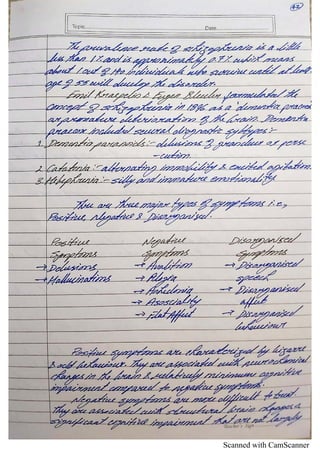 42
Topic
Date
The prevalence rate of schizophrenia is a little
less than 1% and is approximately 0.7% which means
about 1 out of 140 individuals who survive until at least
age of 55 will develop the disorder.
Emil Kraepelin & Eugen Bleuler, formulated the
concept of schizophrenia in 1896 as a dementia praecox
or premature deterioration of the brain. Dementia
praecox included several diagnostic subtypes:-
1. Dementia paranoids:- delusions of grandeur or perse
-cution.
2. Catatonia:- alternating immobility & excited agitation.
3. Hebephrenia:- silly and immature emotionality.
There are three major types of symptoms i.e,
Positive, Negative & Disorganised.
Positive Negative Disorganised
Symptoms Symptoms Symptoms
→ Delusions → Avolition → Disorganised
→ Hallucinations → Alogia speech
→ Anhedonia → Disorganised
→ Asociality affect
→ Flat Affect → Disorganised
behaviour
Positive symptoms are characterized by bizarre
& odd behaviour. They are associated with neurochemical
changes in the brain & relatively minimum cognitive
impairment compared to negative symptoms.
Negative symptoms are more difficult to treat.
They are associated with structural brain changes &
significant cognitive impairment that are not largely
Teacher's Sign
Scanned with CamScanner